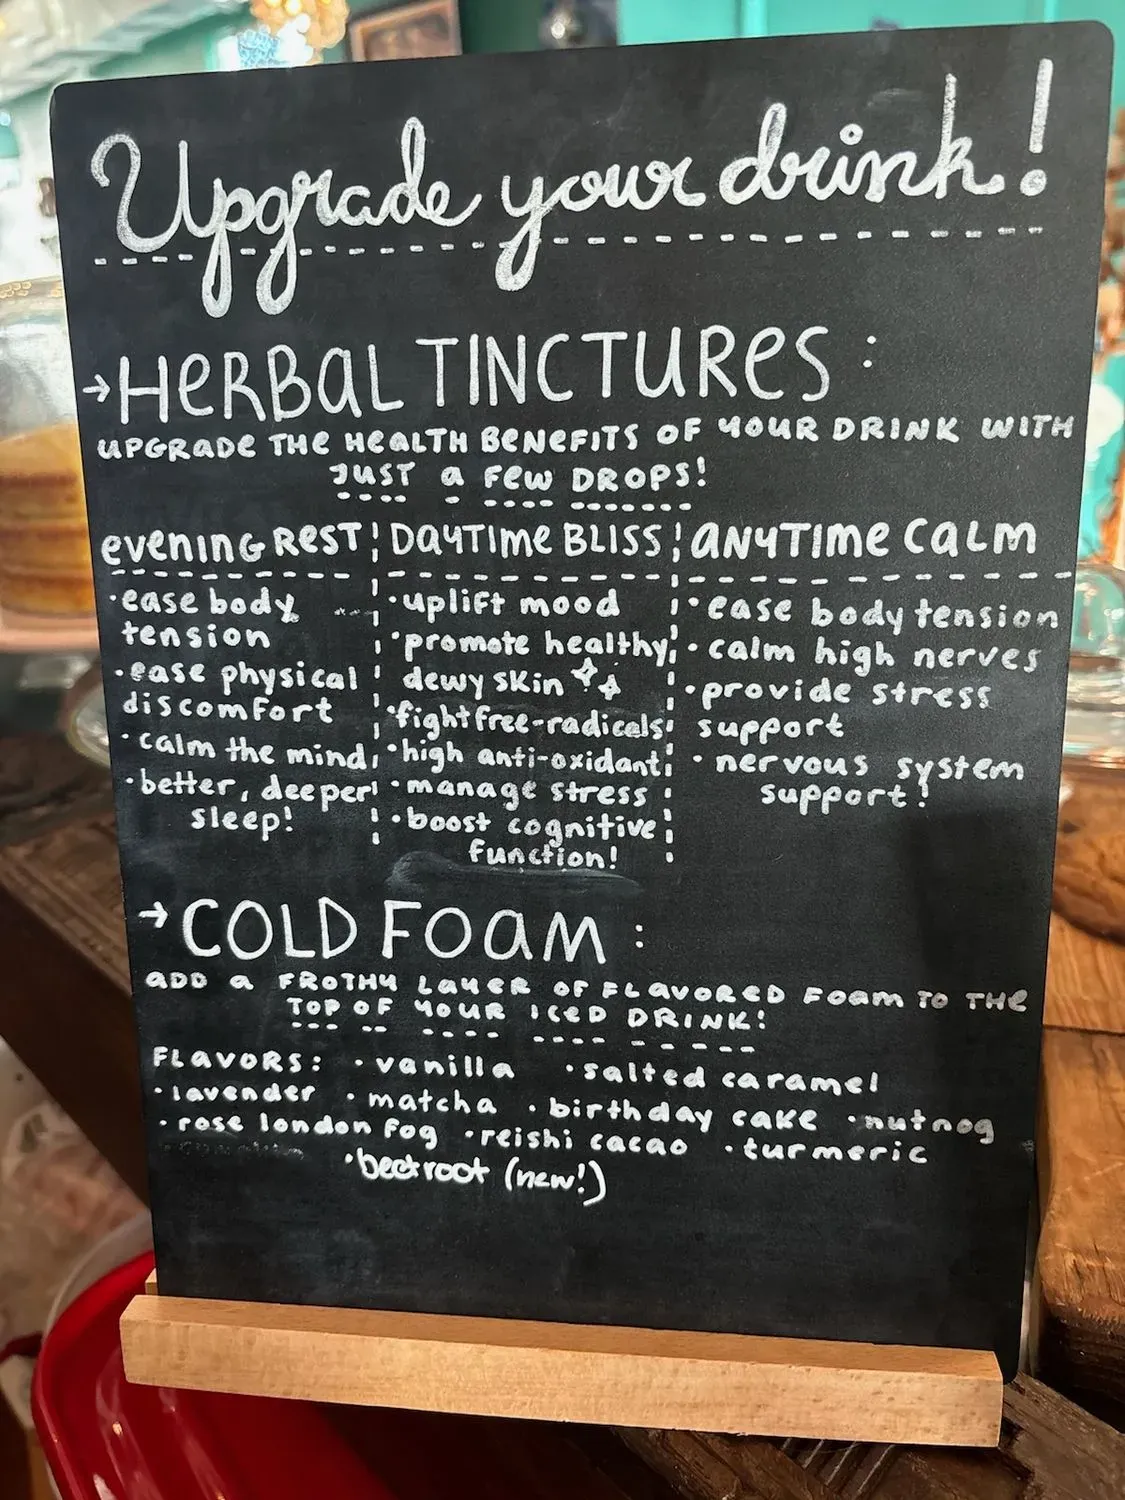 Upgrade your drink!
→ HERBAL TINCTURES:
UPGRADE THE HEALTH BENEFITS OF YOUR DRINK WITH
JUST a FEW DROPS!
evening REST
• ease body
tension
• ease physical
discomfort
• calm the mind
• better, deeper
sleep!
DAYTIME BLISS
• uplift mood
• promote healthy
dewy skin
• fight free-radicals
• high anti-oxidant
• manage stress
• boost cognitive
function!
ANYTIME CALM
• ease body tension
• calm high nerves
• provide stress
support
• nervous system
support!
→ COLD FOAM:
ADD a FROTHY LAYER OF FLAVORED FOAM TO THE
TOP OF YOUR ICED DRINK!
FLAVORS: • vanilla • salted caramel
• lavender • matcha • birthday cake • nutnog
• rose london fog • reishi cacao • turmeric
• beetroot (new!)